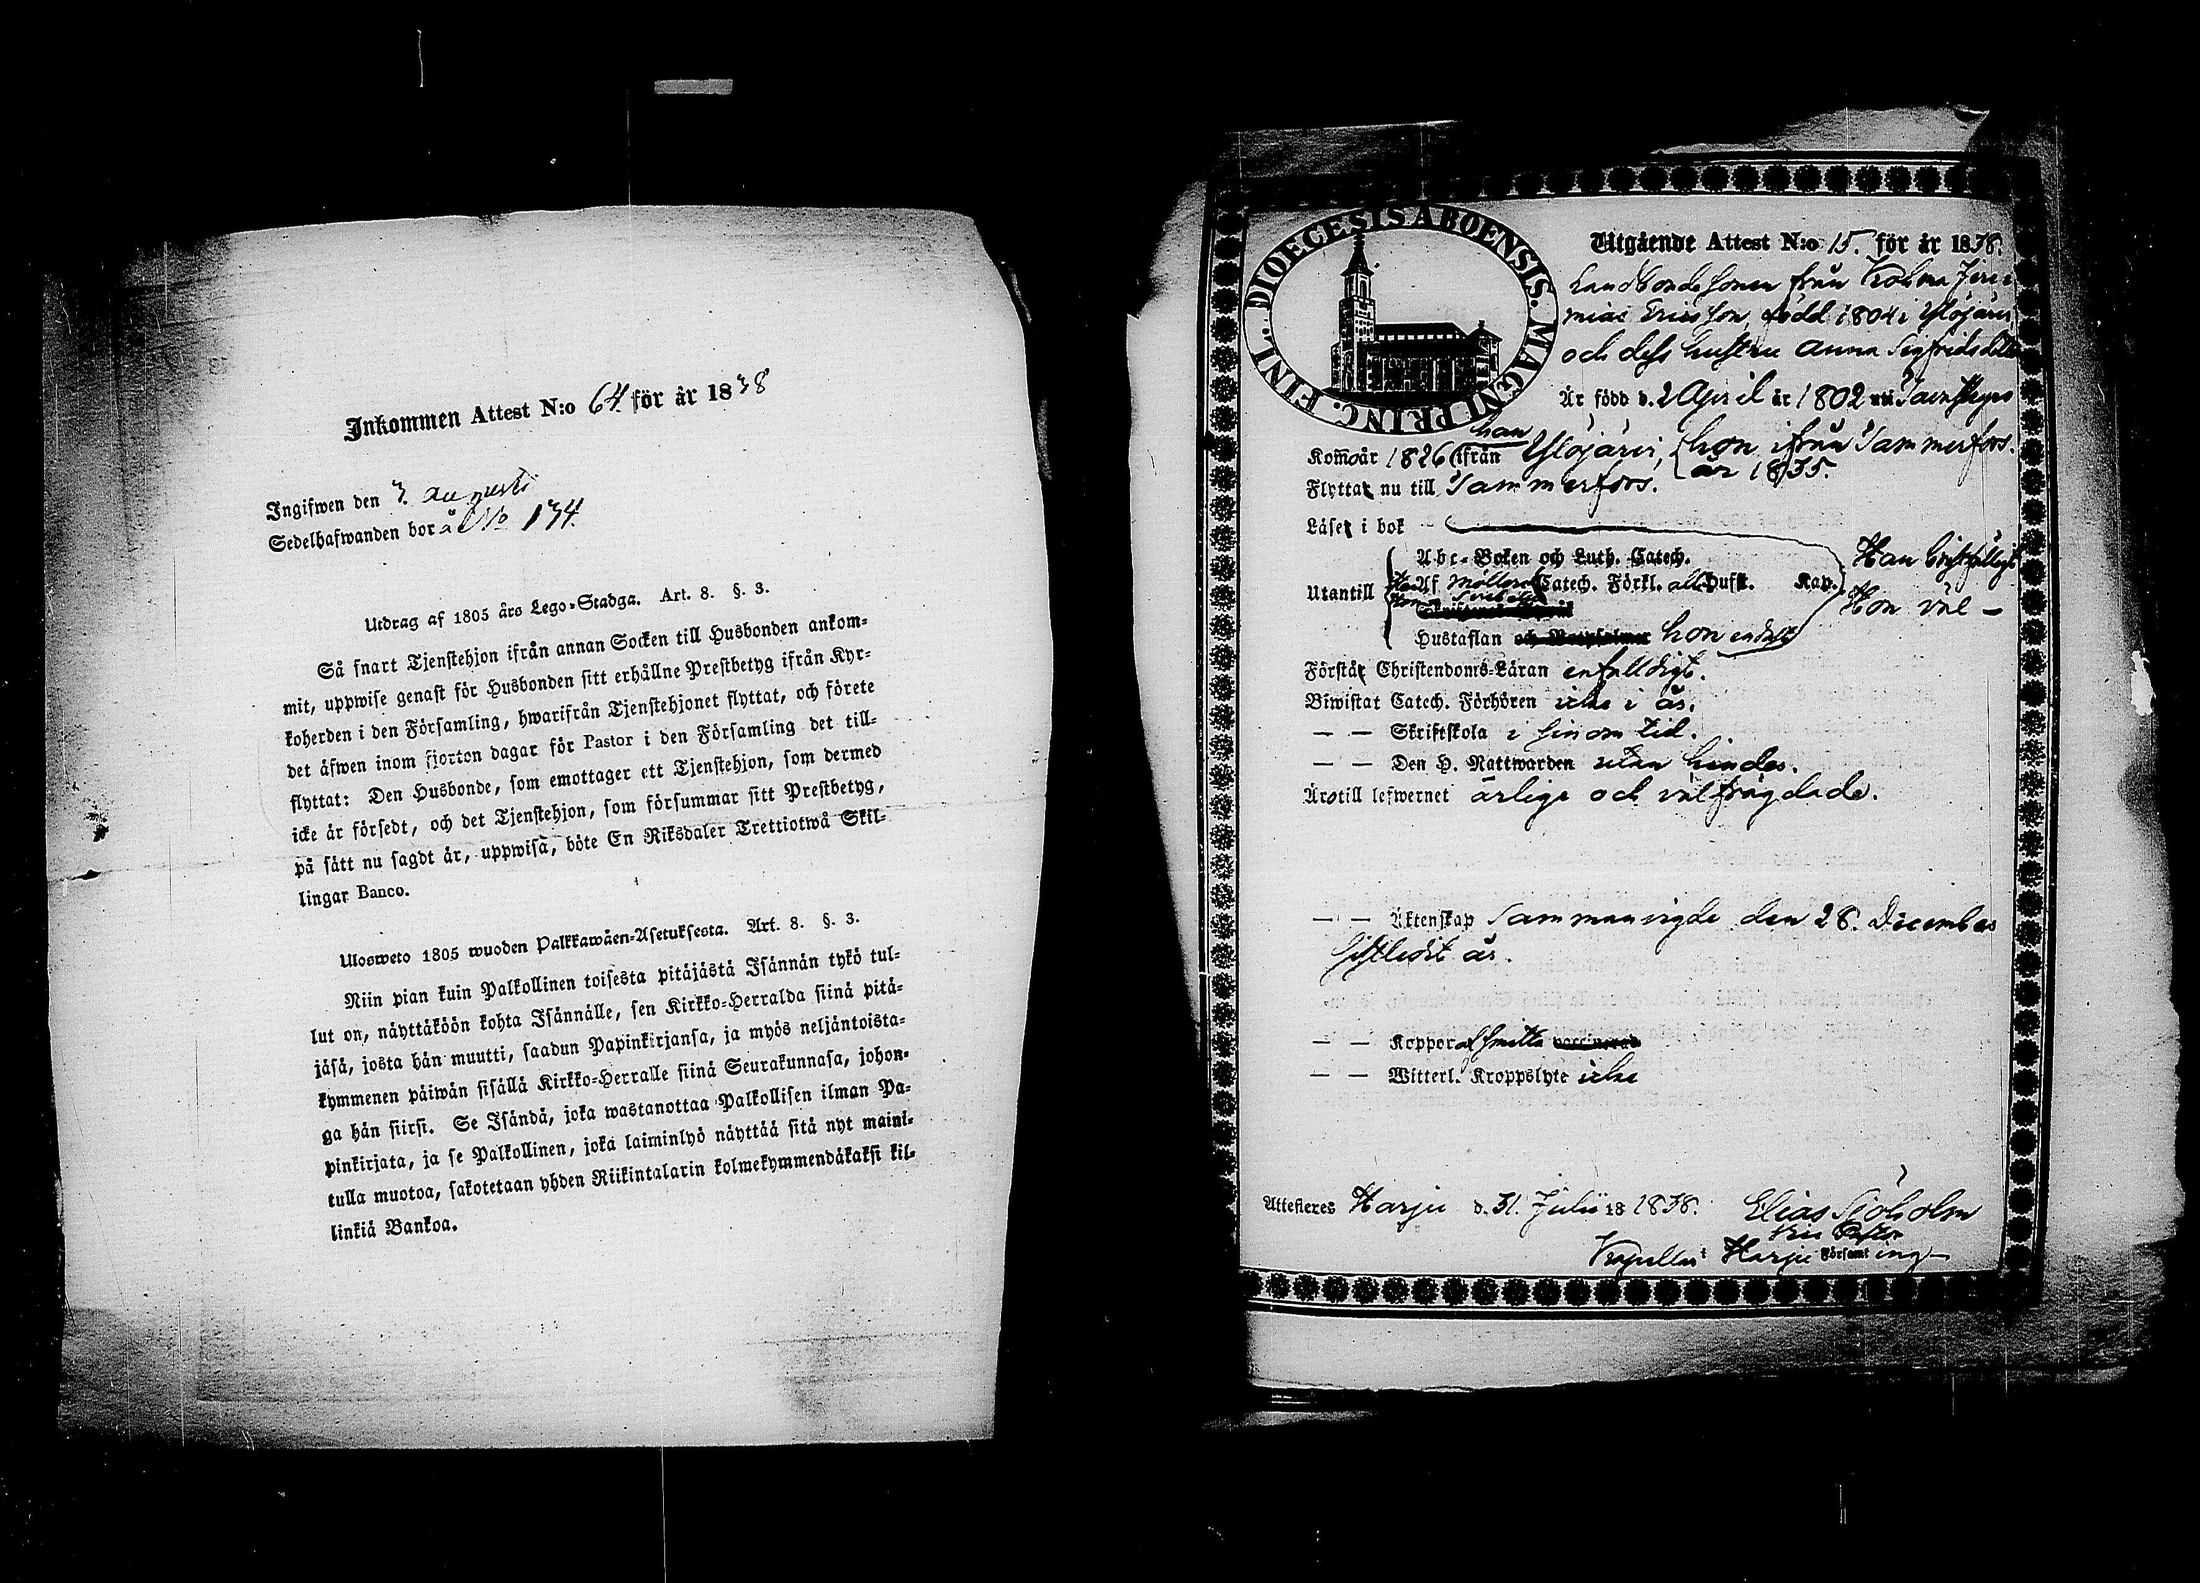 Inkommen Attest N:o 64. för år 1838
Ingifwen den 3. augusti
Sedelhafwanden bor å No 134.
Utdrag af 1805 års Lego-Stadga. Art. 8. §. 3.
Så snart Tjenstehjon ifrån annan Socken till Husbonden ankom-
mit, uppwise genast för Husbonden sitt erhållne Prestbetyg ifrån Kyr-
koherden i den Församling, hwarifrån Tjenstehjonet flyttat, och förete
det äfwen inom fjorton dagar för Pastor i den Församling det till-
flyttat: Den Husbonde, som emottager ett Tjenstehjon, som dermed
icke är försedt, och det Tjenstehjon, som försummar sitt Prestbetyg,
på sätt nu sagdt är, uppwisa, böte En Riksdaler Trettiotwå Skil-
lingar Banco.
Ulosweto 1805 wuoden Palkkawäen-Asetuksesta. Art. 8. §. 3.
Niin pian kuin Palkollinen toisesta pitäjästä Isännän tykö tul-
lut on, näyttäköön kohta Isännälle, sen Kirkko-Herralda siinä pitä-
jäsä, josta hän muutti, saadun Papinkirjansa, ja myös neljäntoista-
kymmenen päiwän sisällä Kirkko-Herralle siinä Seurakunnasa, johon-
ga hän siirsi. Se Isändä, joka wastanottaa Palkollisen ilman Pa-
pinkirjata, ja se Palkollinen, joka laiminlyö näyttää sitä nyt maini-
tulla muotoa, sakotetaan yhden Riikintalarin kolmekymmendäkaksi kil-
linkiä Bankoa.
DIOECESIS ABOENSIS. MAGNI PRINC. FINL.
Utgående Attest N:o 15. för år 1838.
Landbondesonen från Kolma Jere
mias Ericsson, född 1804 i Ylöjärvi
och dess hustru Anna Sigfridsdotter
Är född d. 2 April år 1802 i
han
Kom år 1826 ifrån Ylöjärvi, hon ifrån Tammerfors.
år 1835.
Flytta nu till Tammerfors.
Läser i bok
Abc-Boken och Luth. Catech.
Han
Utantill Af Möllers Catech. Förkl. all Hufst. Kap.
Hon väl –
Hustaflan hon endast
Förstår Christendoms-Läran enfalldigt.
Biwistat Catech. Förhören icke i år.
— — Skriftskola i sinom tid.
— — Den H. Nattwarden utan hinder.
Äro till lefwernet ärlige och välfrägdade.
— — Äktenskap Sammanvigde den 28. December
sistledit år.
— — Koppor Smitta
— — Witterl. Kroppslyte icke
Attesteres Harju d. 31. Julii 18 1838. Elias Sjöholm
Vice Pastor
Kapellet Harju Församling